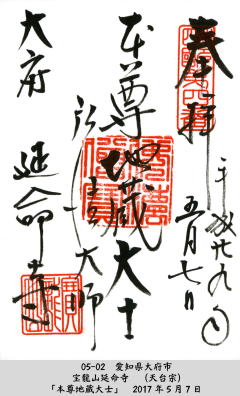 奉拝
平成廿九年
五月七日
本尊地蔵大士
弘法大師
大府
延命寺
05-02 愛知県大府市
宝龍山延命寺 (天台宗)
「本尊地蔵大士」 2017年5月7日